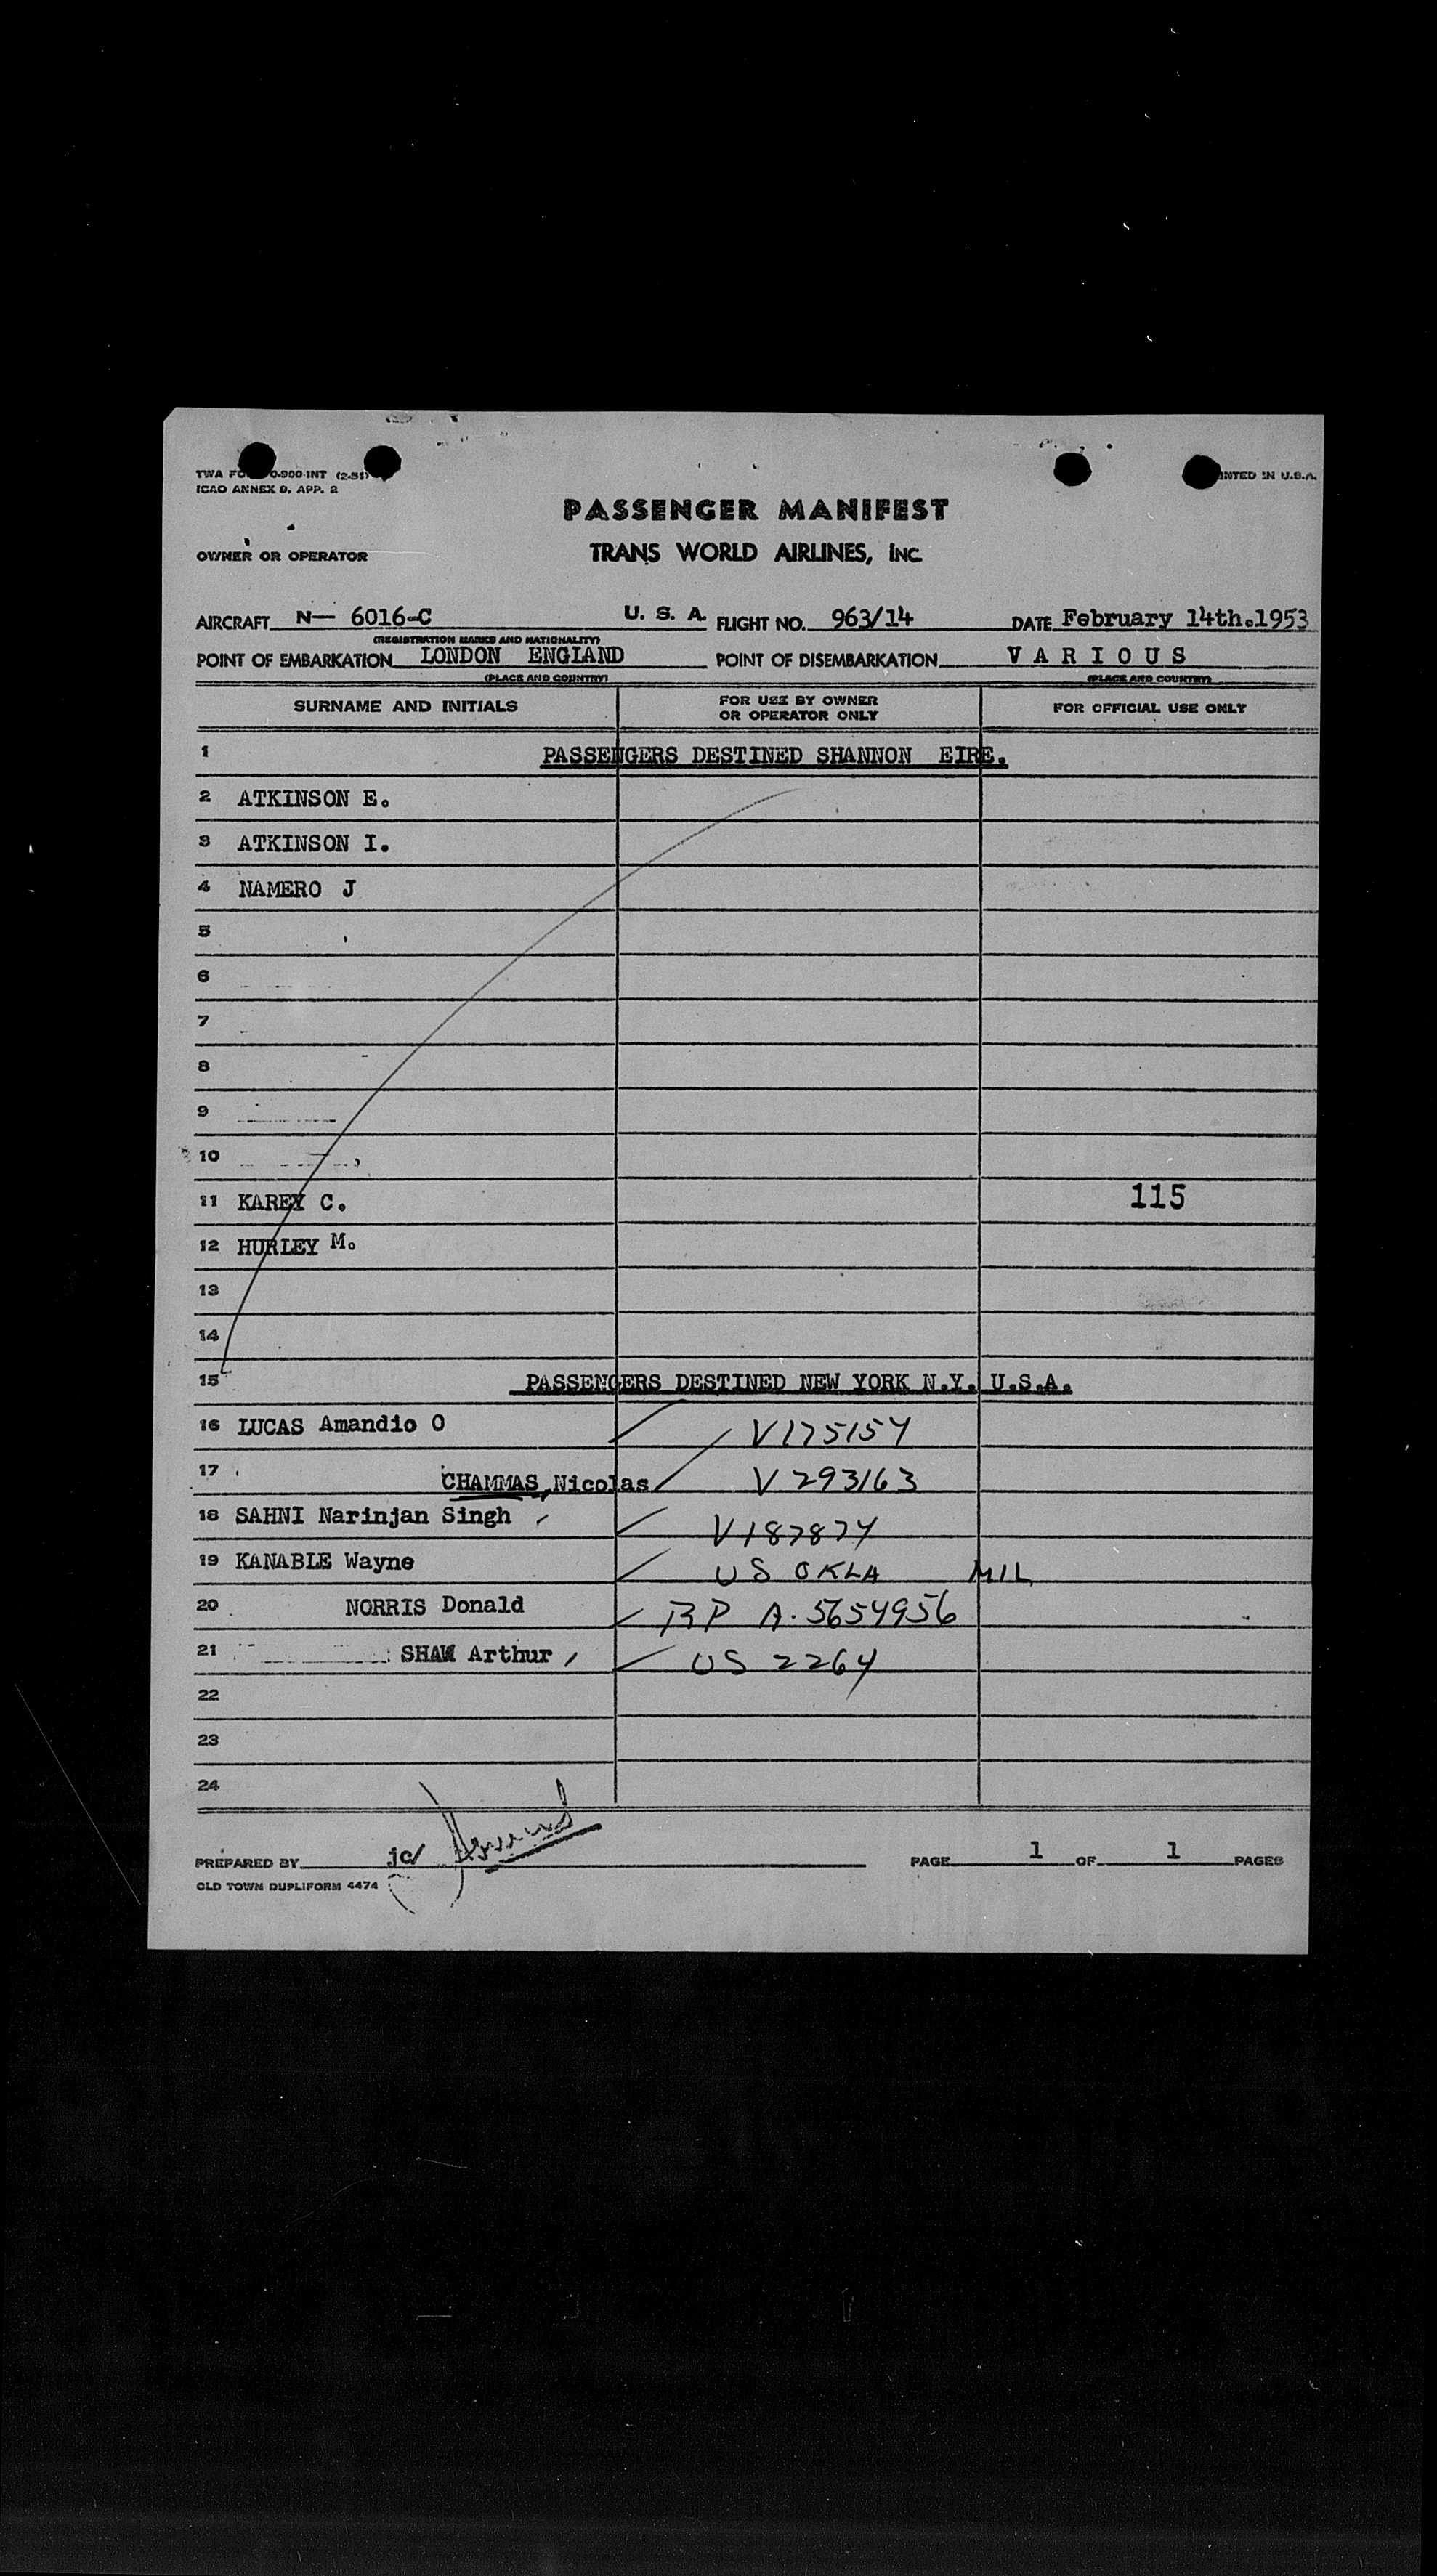 TWA FO 0-900-INT (2-51)
NTED IN U.S.A.
ICAO ANNEX 9. APP. 2
PASSENGER MANIFEST
OWNER OR OPERATOR TRANS WORLD AIRLINES, INC
AIRCRAFT N— 6016-C U. S. A. FLIGHT NO. 963/14 DATE February 14th.1953
(REGISTRATION MARKS AND NATIONALITY)
POINT OF EMBARKATION LONDON ENGLAND POINT OF DISEMBARKATION V A R I O U S
(PLACE AND COUNTRY) (PLACE AND COUNTRY)
SURNAME AND INITIALS FOR USE BY OWNER OR OPERATOR ONLY FOR OFFICIAL USE ONLY
1 PASSENGERS DESTINED SHANNON EIRE.
2 ATKINSON E.
3 ATKINSON I.
4 NAMERO J
5
6
7
8
9
10
11 KAREY C. 115
12 HURLEY M.
13
14
15 PASSENGERS DESTINED NEW YORK N.Y. U.S.A.
16 LUCAS Amandio O V175154
17 CHAMMAS, Nicolas V293163
18 SAHNI Narinjan Singh V187874
19 KANABLE Wayne US OKLA MIL
20 NORRIS Donald BP A.5654956
21 SHAW Arthur US 2264
22
23
24
PREPARED BY jc/ PAGE 1 OF 1 PAGES
OLD TOWN DUPLIFORM 4474